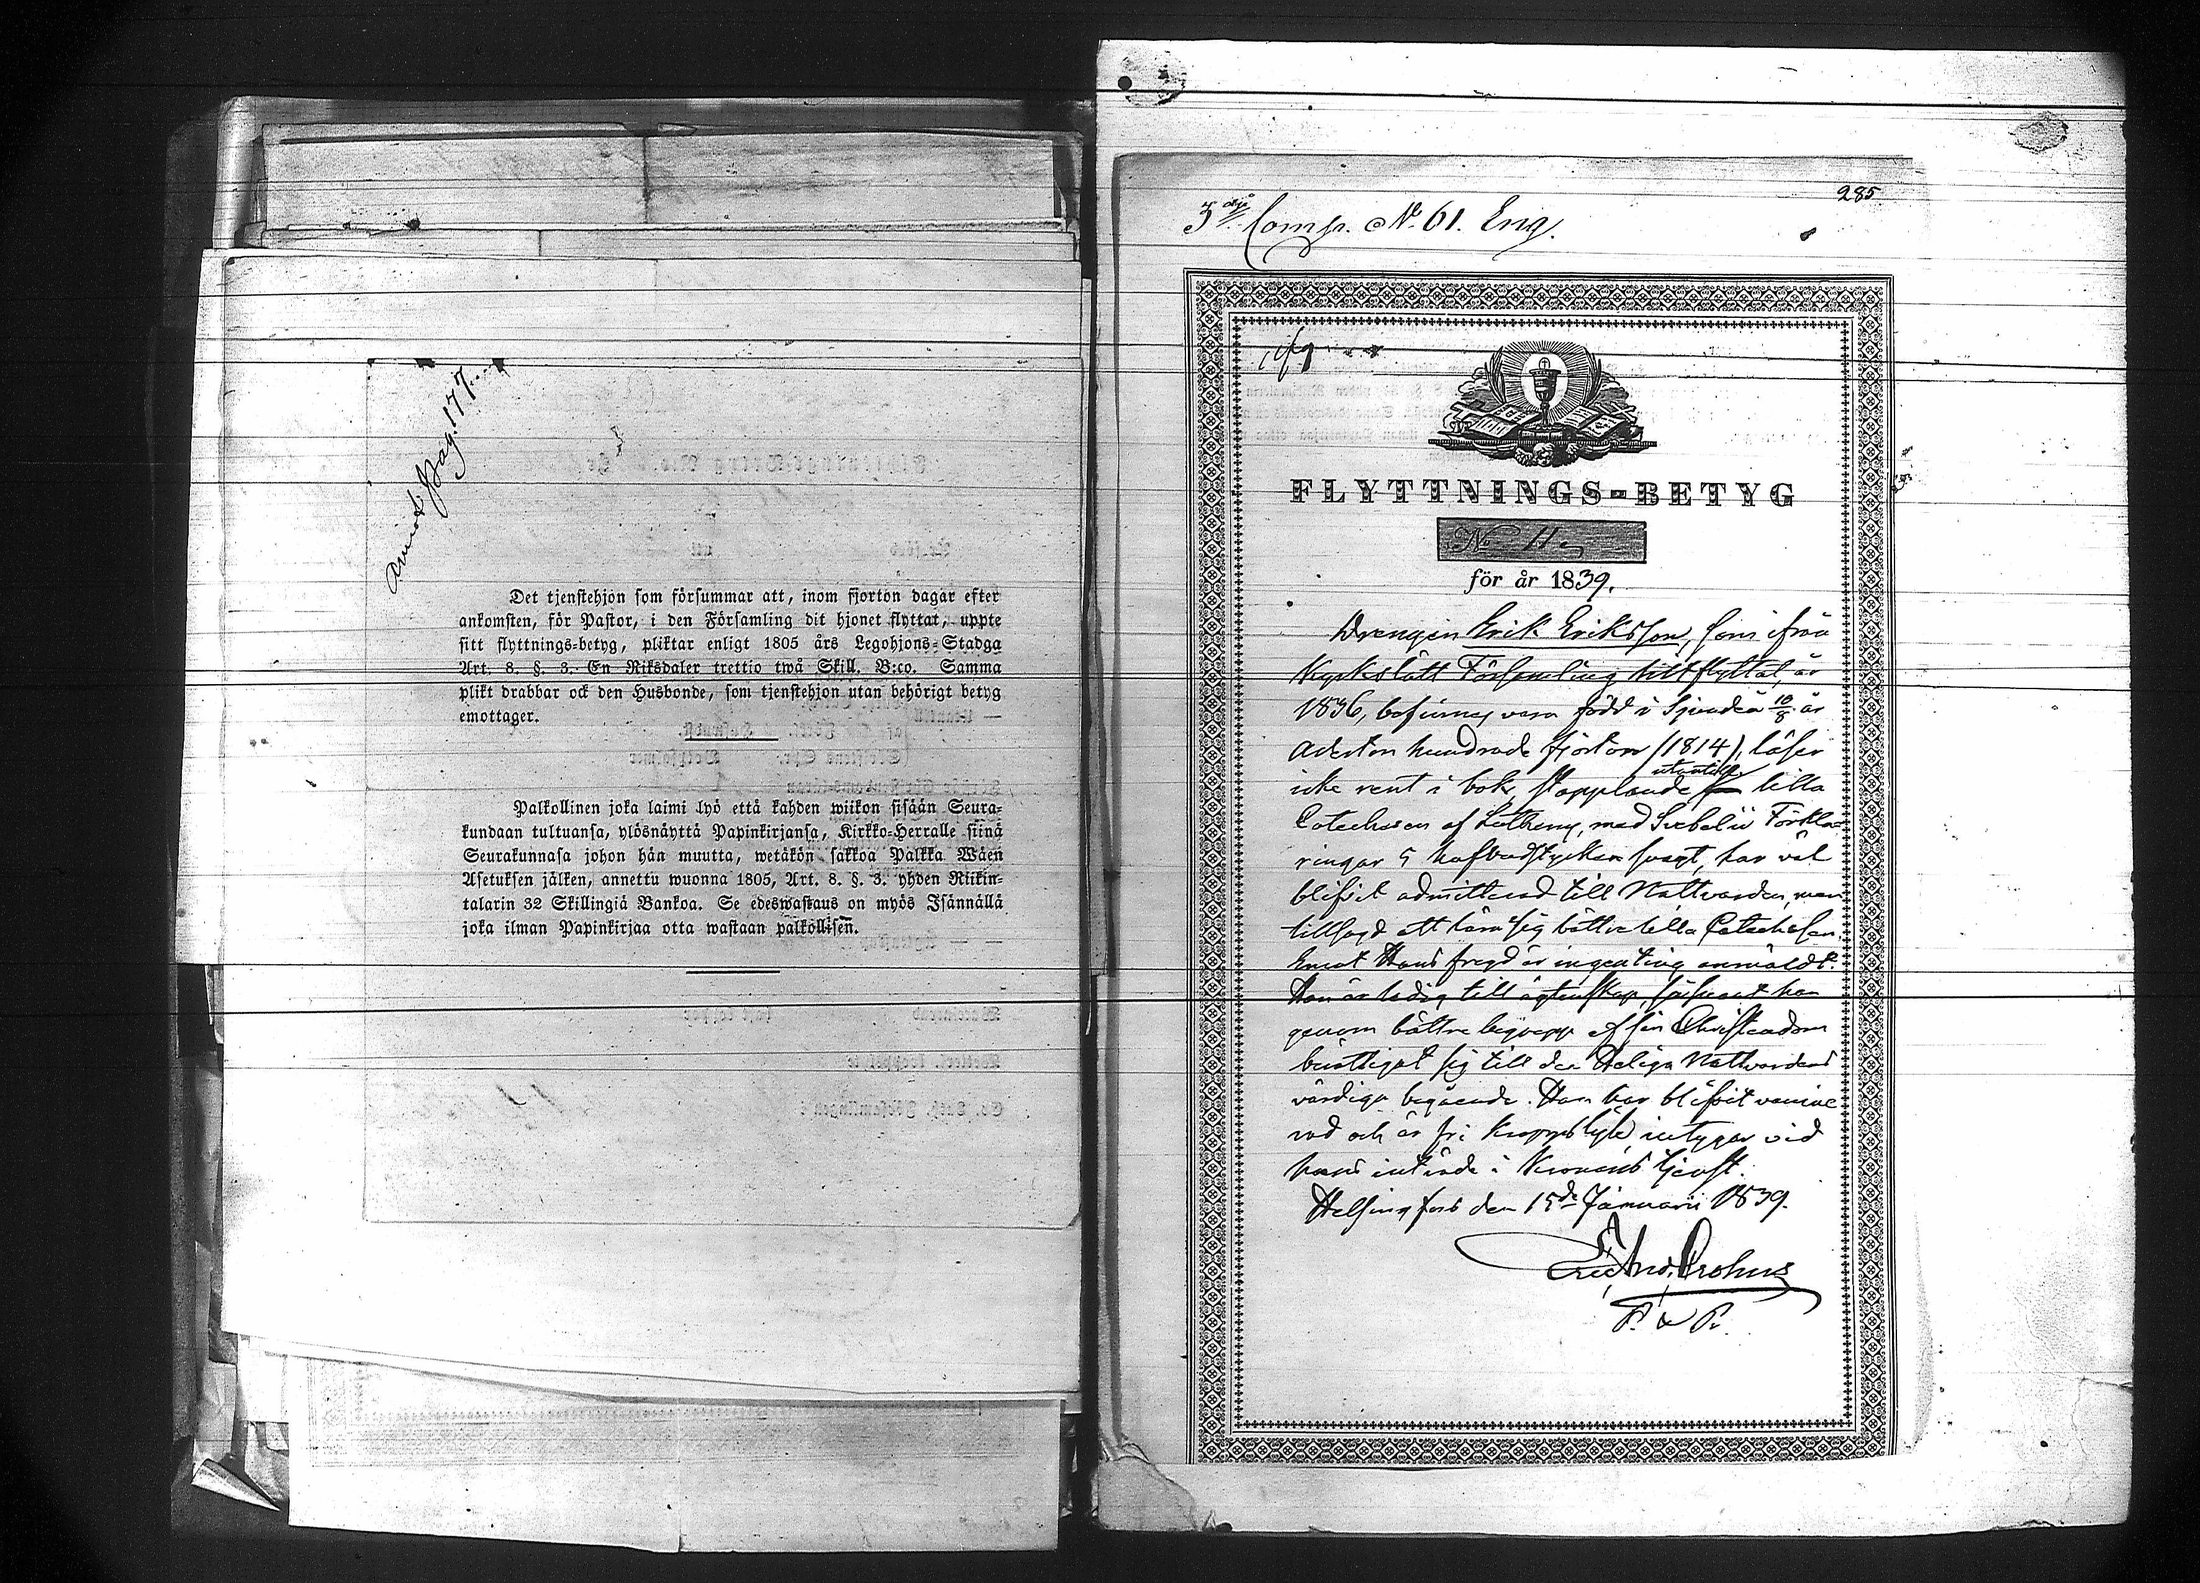 Pag. 177.
Det tjenstehjon som försummar att, inom fjorton dagar efter
ankomsten, för Pastor, i den Församling dit hjonet flyttat, uppte
sitt flyttnings-betyg, pliktar enligt 1805 års Legohjons-Stadga
Art. 8. §. 3. En Riksdaler trettio twå Skill. B:co. Samma
plikt drabbar ock den Husbonde, som tjenstehjon utan behörigt betyg
emottager.
Palkollinen joka laimi lyö että kahden wiikon sisään Seura-
kundaan tultuansa, ylösnäyttä Papinkirjansa, Kirkko-Herralle siinä
Seurakunnasa johon hän muutta, wetäkön sakkoa Palkka Wäen
Asetuksen jälken, annettu wuonna 1805, Art. 8. §. 3. yhden Riikin-
talarin 32 Skillingiä Bankoa. Se edeswastaus on myös Isännällä
joka ilman Papinkirjaa otta wastaan palkollisen.
285
3dje Comp. No. 61. Eng.
FLYTTNINGS-BETYG
No 11
för år 1839.
Drengen Erik Eriksson, som ifrån
Kyrkslätt Församling tillflyttat, år
1836, befinnes vara född i Sjundeå 10/8 år
Aderton hundrade fjorton (1814), läser
icke rent i bok, stapplande utantill lilla
Catechesen af Lutherus, med Svebelii Förkla-
ringar 5 hufvudstycken svagt, har väl
blifvit admitterad till Nattvarden, men
tillsagd att lära sig bättre lilla Catechesen.
Emot Hans fregd är ingenting anmäldt.
Han är ledig till ägtenskap, såframt han
genom bättre begrepp af sin Christendom
berättigat sig till den Heliga Nattvardens
värdiga begående. Han har blifvit vaccine
rad och är fri kroppslyte, intygar vid
hans inträde i Kronans tjenst.
Helsingfors den 15de Januarii 1839.
Eric And. Crohns
P. & P.